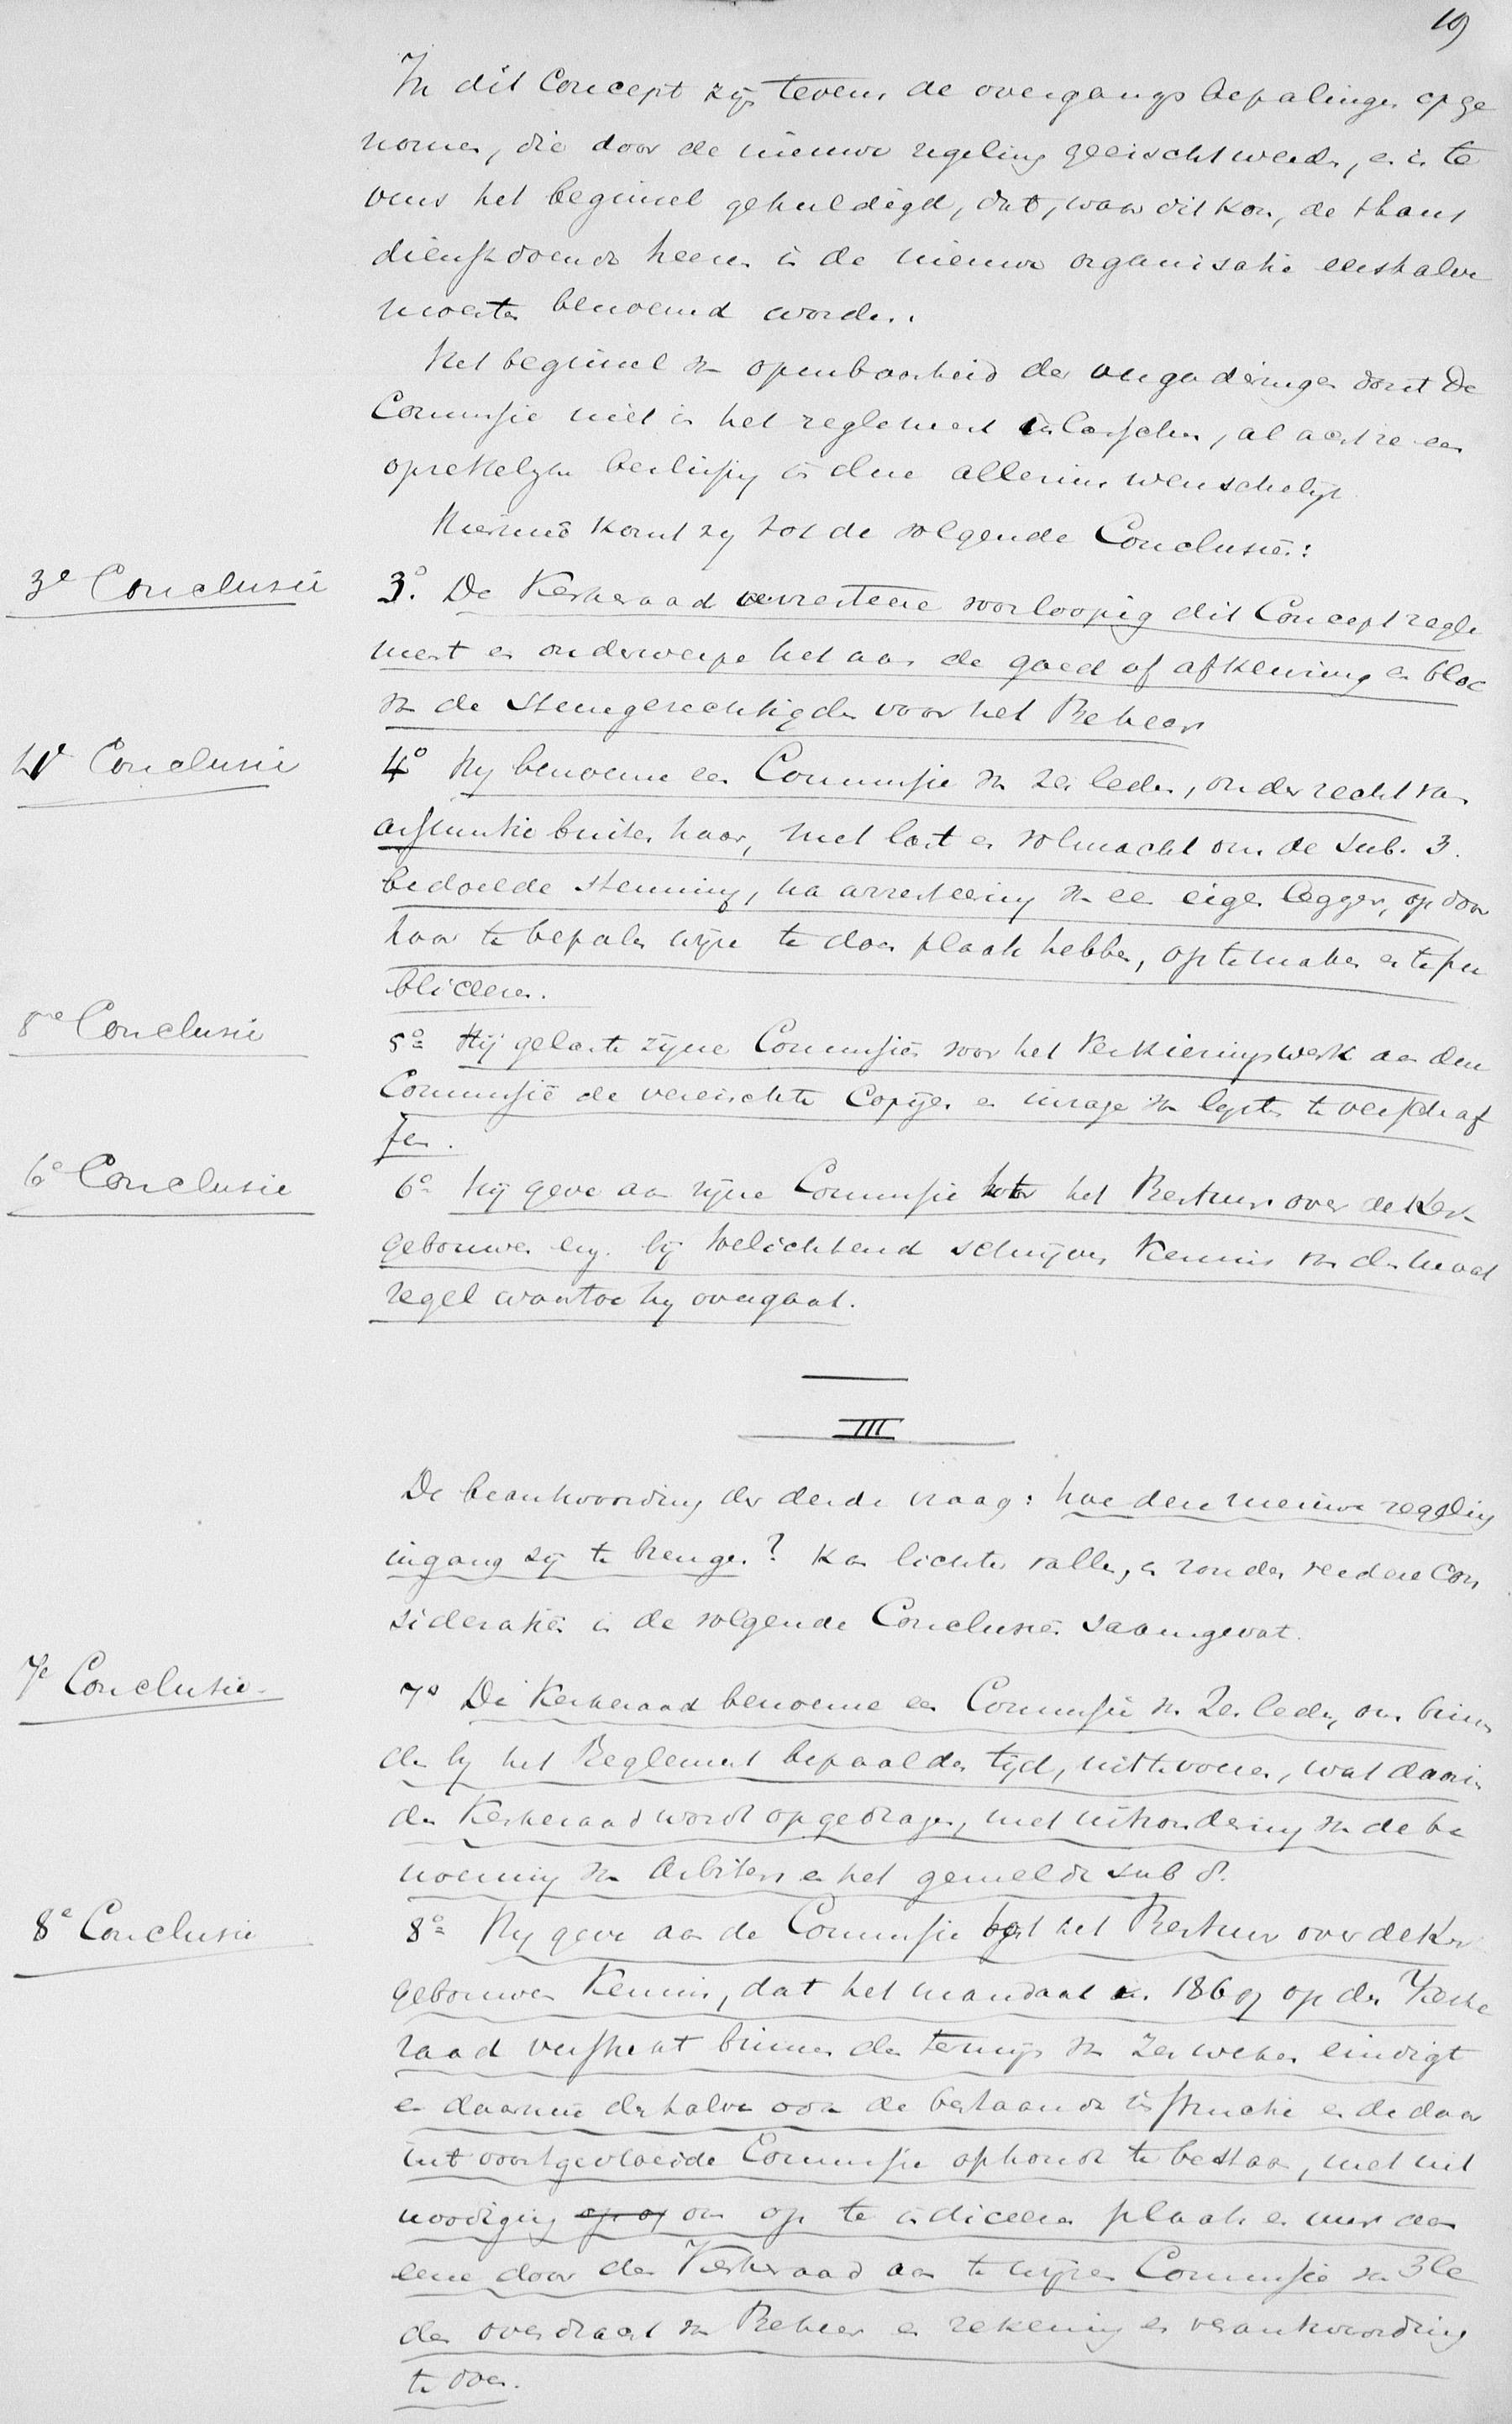 19
In dit Concept zijn tevens de overgangsbepalingen opge
nomen, die door de nieuwe regeling geëischt werden, en is te
vens het beginsel gehuldigd, dat, waar dit kon, de thans
dienstdoende heeren in de nieuwe organisatie eershalve
moesten benoemd worden.
Het beginsel van openbaarheid der vergaderingen dorst de
Commissie niet in het reglement in lasschen, al acht ze een
opzettelijke beslissing in deze alleszins wenschelijk
Hiermeê komt zij tot de volgende Conclusiën:
3e Conclusie
3o. De Kerkeraad arresteere voorloopig dit Concept regle
ment en onderwerpe het aan de goed of afkeuring en bloc
van de stemgerechtigden voor het Beheer
4e Conclusie
4o Hij benoeme een Commissie van zes leden, onder recht van
assumtie buiten haar, met last en volmacht om de sub. 3.
bedoelde stemming, na arresteering van een eigen legger, op door
haar te bepalen wijze te doen plaats hebben, op te maken en te pu
bliceren.
5e Conclusie
5o Hij gelaste zijne Commissie voor het Verkiezingswerk aan deze
Commissie de vereischte Copijen en inzage van lijsten te verschaf
fen.
6e Conclusie
6o Hij geve aan zijne Commissie tot het Bestuur over de Kerk
gebouwen enz. bij toelichtend schrijven kennis van den maat
regel waartoe hij overgaat.
III
De beantwoording der derde vraag: hoe deze nieuwe regeling
in gang zij te brengen? kan lichter vallen, en zonder verdere con
sideratiën in de volgende Conclusiën saamgevat.
7e Conclusie
7o De Kerkeraad benoeme een Commissie van zes leden, om binnen
den bij het Reglement bepaalden tijd, uittevoeren, wat daarin
den Kerkeraad wordt opgedragen, met uitzondering van de be
noeming van Arbiters en het gemelde sub 8.
8e Conclusie
8o Hij geve aan de Commissie tot het Bestuur over de Kerk
gebouwen kennis, dat het mandaat in 1869 op den Kerke
raad verstrekt binnen den termijn van zes weken eindigt
en daarmeê derhalve ook de bestaande instructie en de daar
uit voortgevloeide Commissie ophoudt te bestaan, met uit
noodiging om op te indiceeren plaats en uur aan
eene door den Kerkeraad aan te wijzen Commissie van 3 le
den overdracht van Beheer en rekening en verantwoording
te doen.